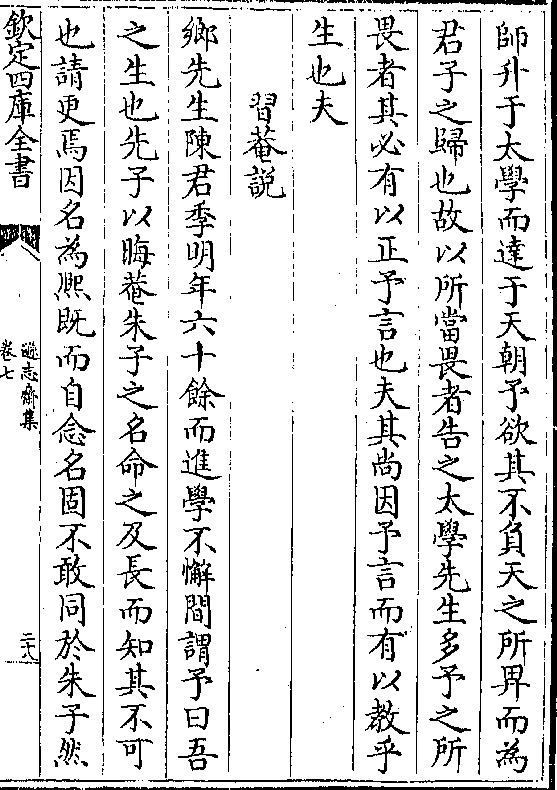 師升于太學而達于天朝予欲其不負天之所畀而為
君子之歸也故以所當畏者告之太學先生多予之所
畏者其必有以正予言也夫其尚因予言而有以教乎
生也夫
習菴説
鄉先生陳君季明年六十餘而進學不懈間謂予曰吾
之生也先子以晦菴朱子之名命之及長而知其不可
也請更焉因名為熈既而自念名固不敢同於朱子然
欽定四庫全書
遜志齋集
卷七
二六